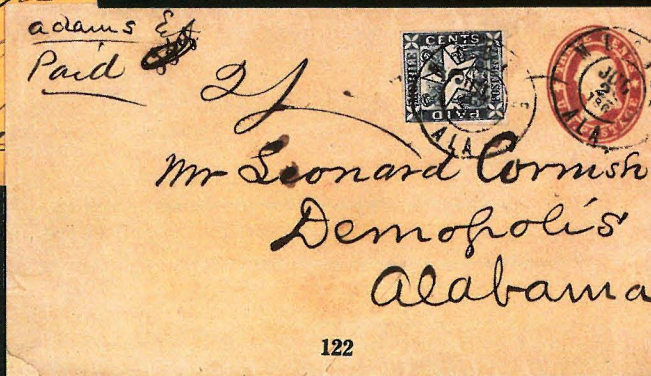 adams Ex
Paid 2/
CENTS
PAID
ALA
JUL
ALA
Mr Leonard Cornish
Demopolis
Alabama
122